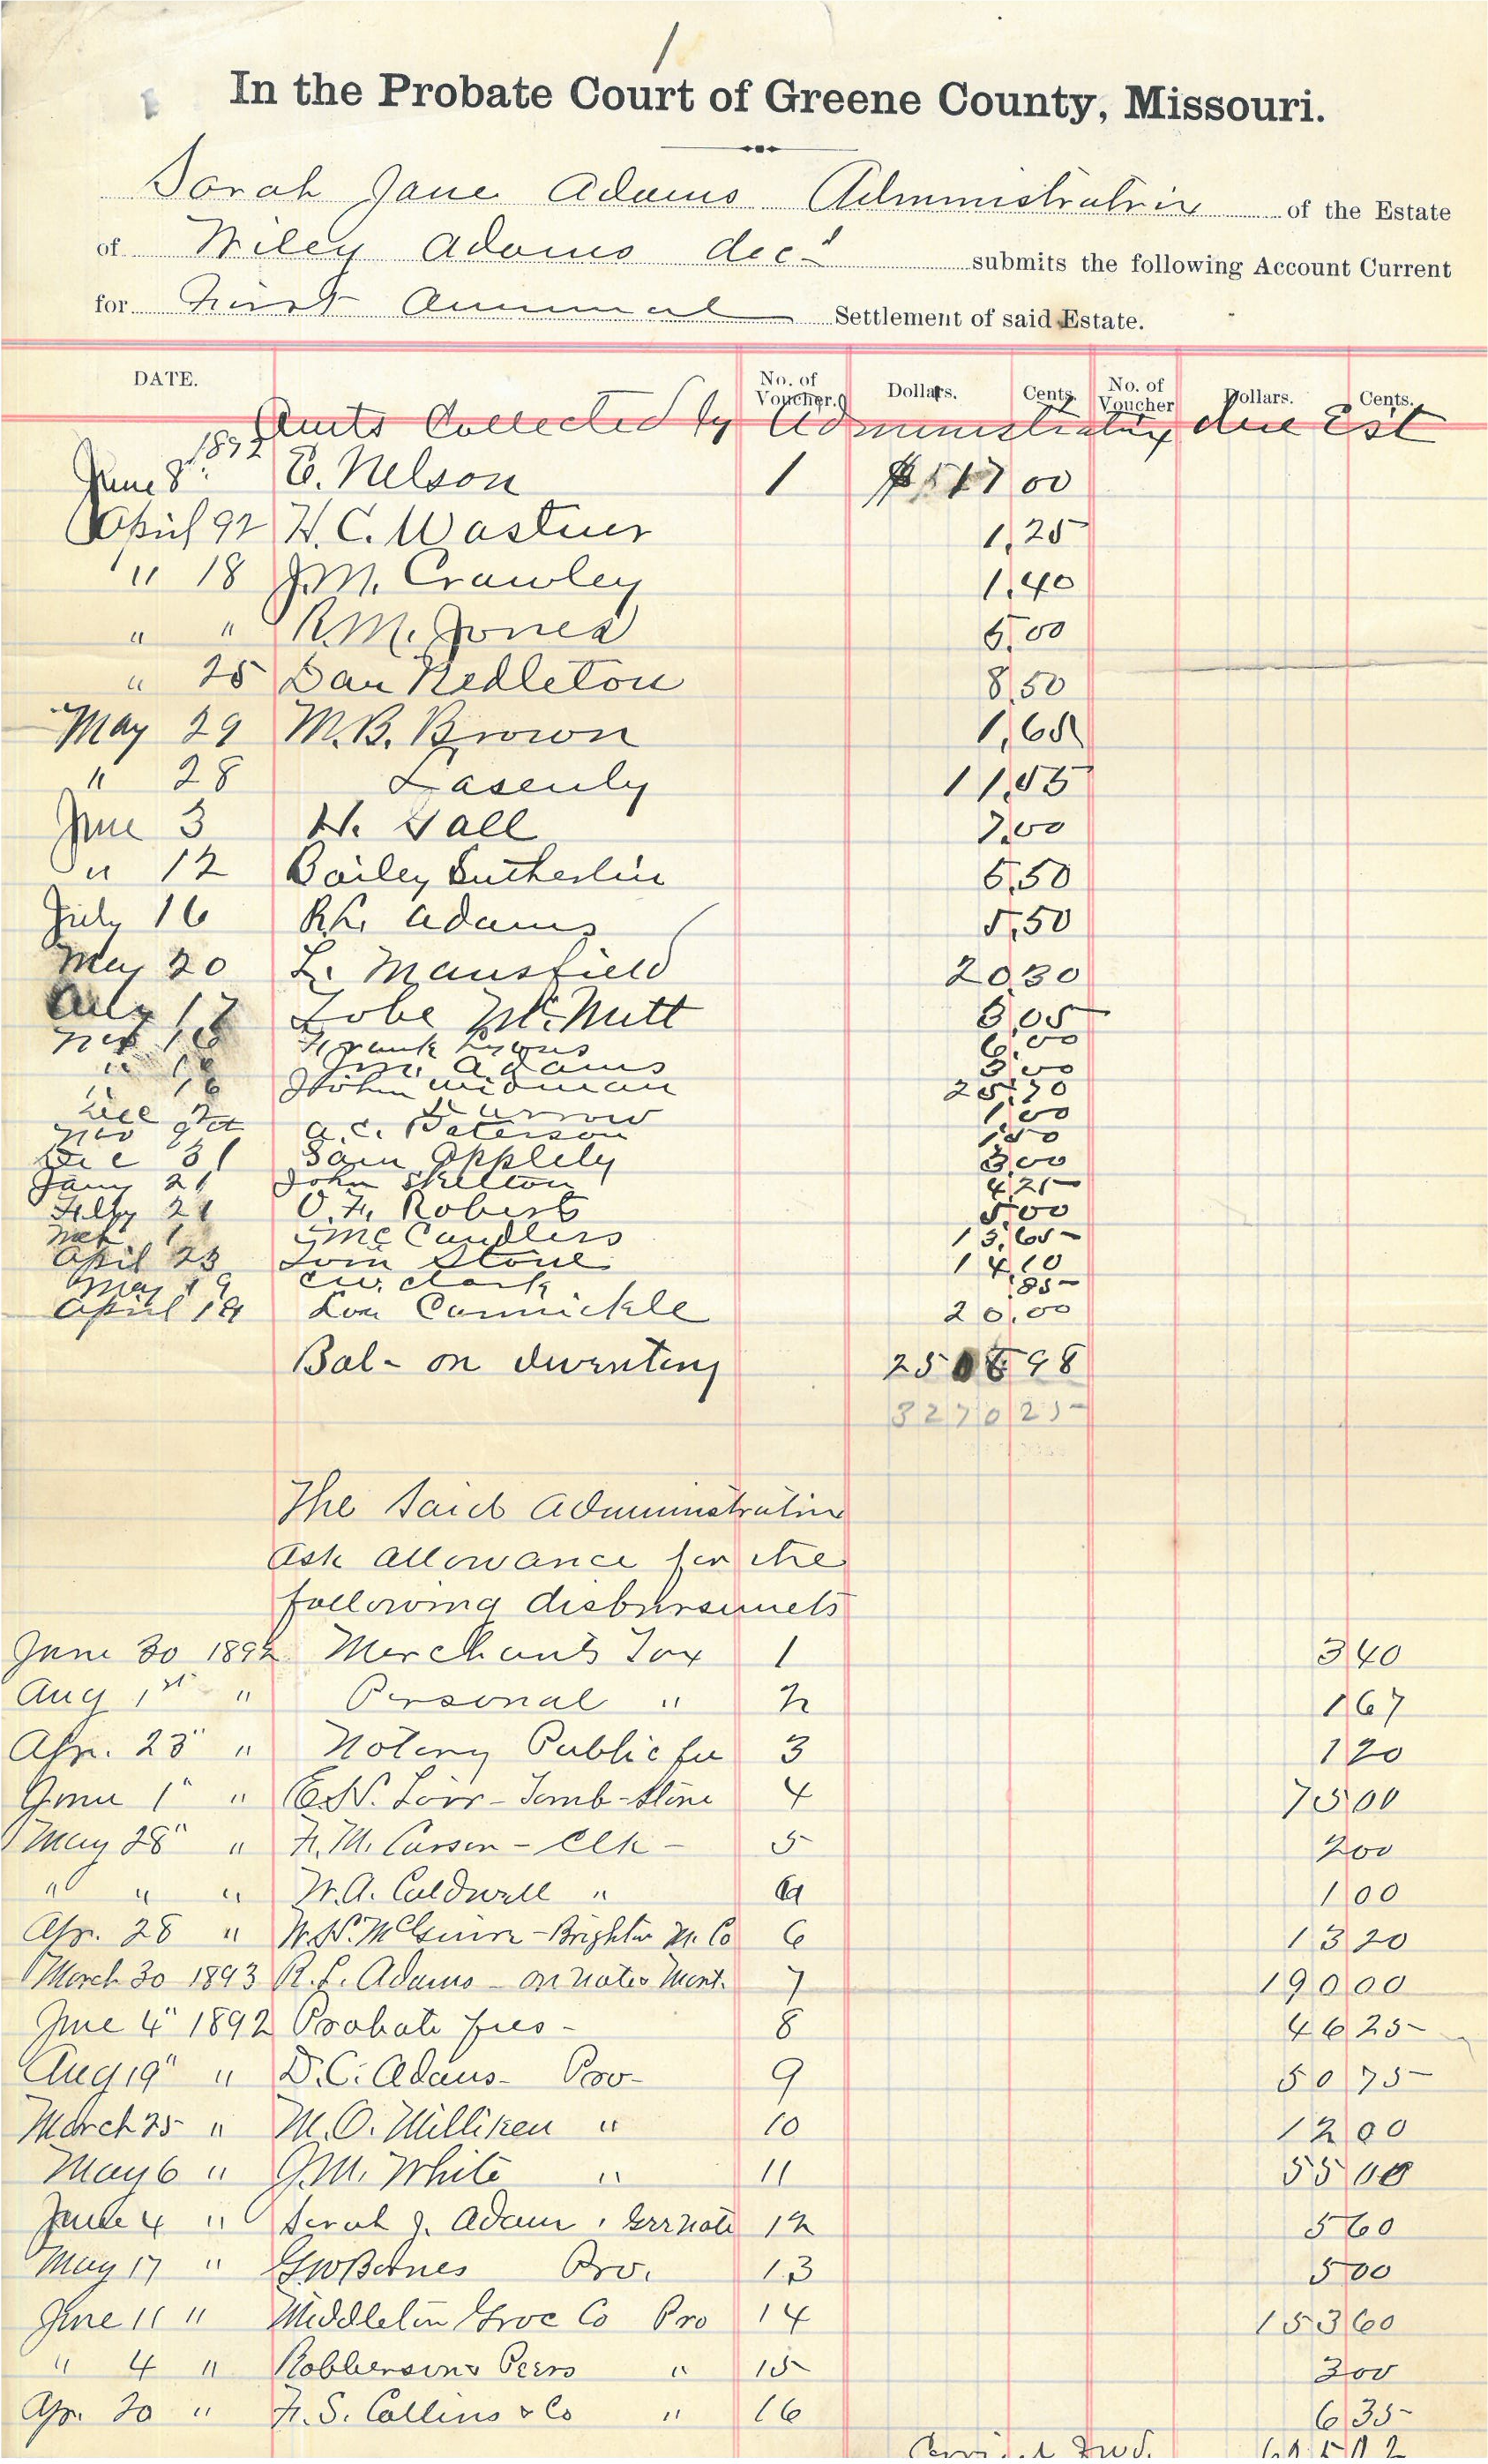 1
In the Probate Court of Greene County, Missouri.
Sarah Jane Adams Administratrix of the Estate
of Wiley Adams dec'd submits the following Account Current
for First Annual Settlement of said Estate.
DATE. No. of Voucher. Dollars. Cents. No. of Voucher Dollars. Cents.
Amts Collected by Administratrix due Est
1892
June 8" E. Nelson 1 $517 00
April 92 H. C. Wastner 1,25
" 18 J.M. Crawley 1,40
" " R.M. Jones 5,00
" 25 Dan Nedleton 8,50
May 29 M.B. Brown 1,65
" 28 Lasenby 11,05
June 3 H. Gall 7,00
" 12 Bailey Sutherlin 5,50
July 16 R.L. Adams 5,50
May 20 L. Mansfield 20 30
July 17 Tobe McNutt 3,05
16 Frank Lyons 6,00
" 18 Jno. Adams 3,00
" 16 John Widman 25,70
Dec 1,00
Nov 9th A.C. Paterson 1,50
Dec 31 Sam Applely 3,00
Jany 21 John Skelton 4,25
Feby 21 O.F. Roberts 5,00
Mch 1 McCandlers 13,65
April 23 Tom Stone 14 10
May 19 C.W. Clark ,85
April 19 Lou Carmickle 20,00
Bal - on Inventory 98
3270 25
The said Administratrix
ask allowance for the
following disbursments
June 30 1892 Merchants Tax 1 3 40
Aug 1st " Personal " 2 1 67
Apr. 23" " Notary Public fee 3 1 20
June 1" " E.N. Lorr - Tomb-stone 4 75 00
May 28" " F. M. Carson - Clk - 5 2 00
" " " W.A. Caldwell " 1 00
Apr. 28 " W.H. McGuire - Brighter M. Co 6 13 20
March 30 1893 R.L. Adams - on notes Mont. 7 190 00
June 4" 1892 Probate fees - 8 46 25
Aug 19" " D.C. Adams - Pro - 9 50 75
March 25 " M.O. Milliken " 10 12 00
May 6 " J.M. White " 11 55 00
June 4 " Sarah J. Adams, Err note 12 5 60
May 17 " GW Barnes Pro. 13 5 00
June 11 " Middleton Groc Co Pro 14 153 60
" 4 " Robbersons Peers " 15 3 00
Apr. 20 " F. S. Collins & Co " 16 6 35
Carried Fwd.